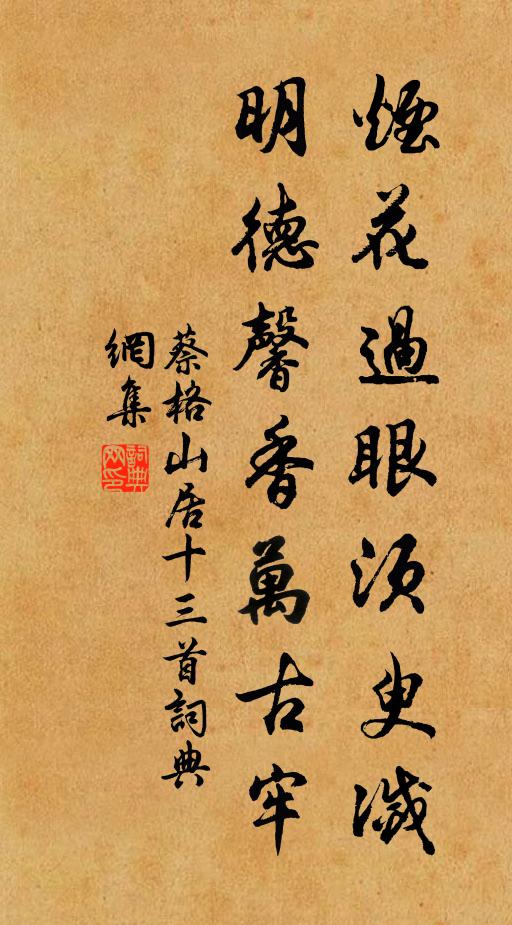 煙花過眼須臾滅
明德馨香萬古牢
蔡格山居十三首詞典
網集
詞典網印